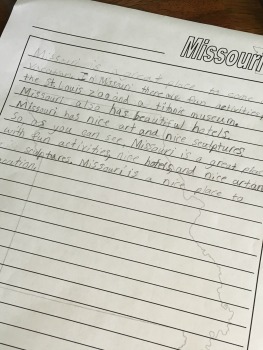 Missouri
Missouri is a great place to
vacation. In Missouri there are fun activities,
the St. Louis zoo and a titanic museum.
Missouri also has beautiful hotels.
Missouri has nice art and nice sculptures.
So as you can see Missouri is a great place
with fun activities, nice hotels, and nice art and
sculptures. Missouri is a nice place to